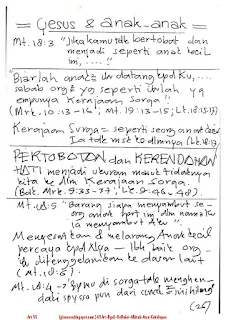 Yesus & anak-anak
Mt. 18:3 "Jika kamu tdk bertobat dan
menjadi seperti anak kecil
ini, ....!"
"Biarlah anak² itu datang kpd Ku, ....
sebab org² yg seperti itulah yg
empunya Kerajaan Sorga!"
(Mrk. 10:13-16; Mt. 19:13-15; Lk. 18:15-17)
Kerajaan Surga = seperti seorg anak kecil
Ia tdk msk ke dlmnya (Lk. 18:17)
PERTOBATAN dan KERENDAHAN
HATI menjadi ukuran masuk tidaknya
kita ke dlm Kerajaan Sorga.
(Bdk. Mrk. 9:33-37; Lk. 9:46-48).
Mt. 18:5 "Barang siapa menyambut se-
org anak spert ini dlm nama Ku
ia menyambut Aku"
Menyesatkan & melarang Anak kecil
percaya kpd Nya - lbh baik org
itu ditenggelamkan ke dasar laut
(Mt. 18:6).
Mt. 18:14 → Bpmu di sorga tdk menghen-
daki spy seorg pun dari anak² ini hilang
(26)